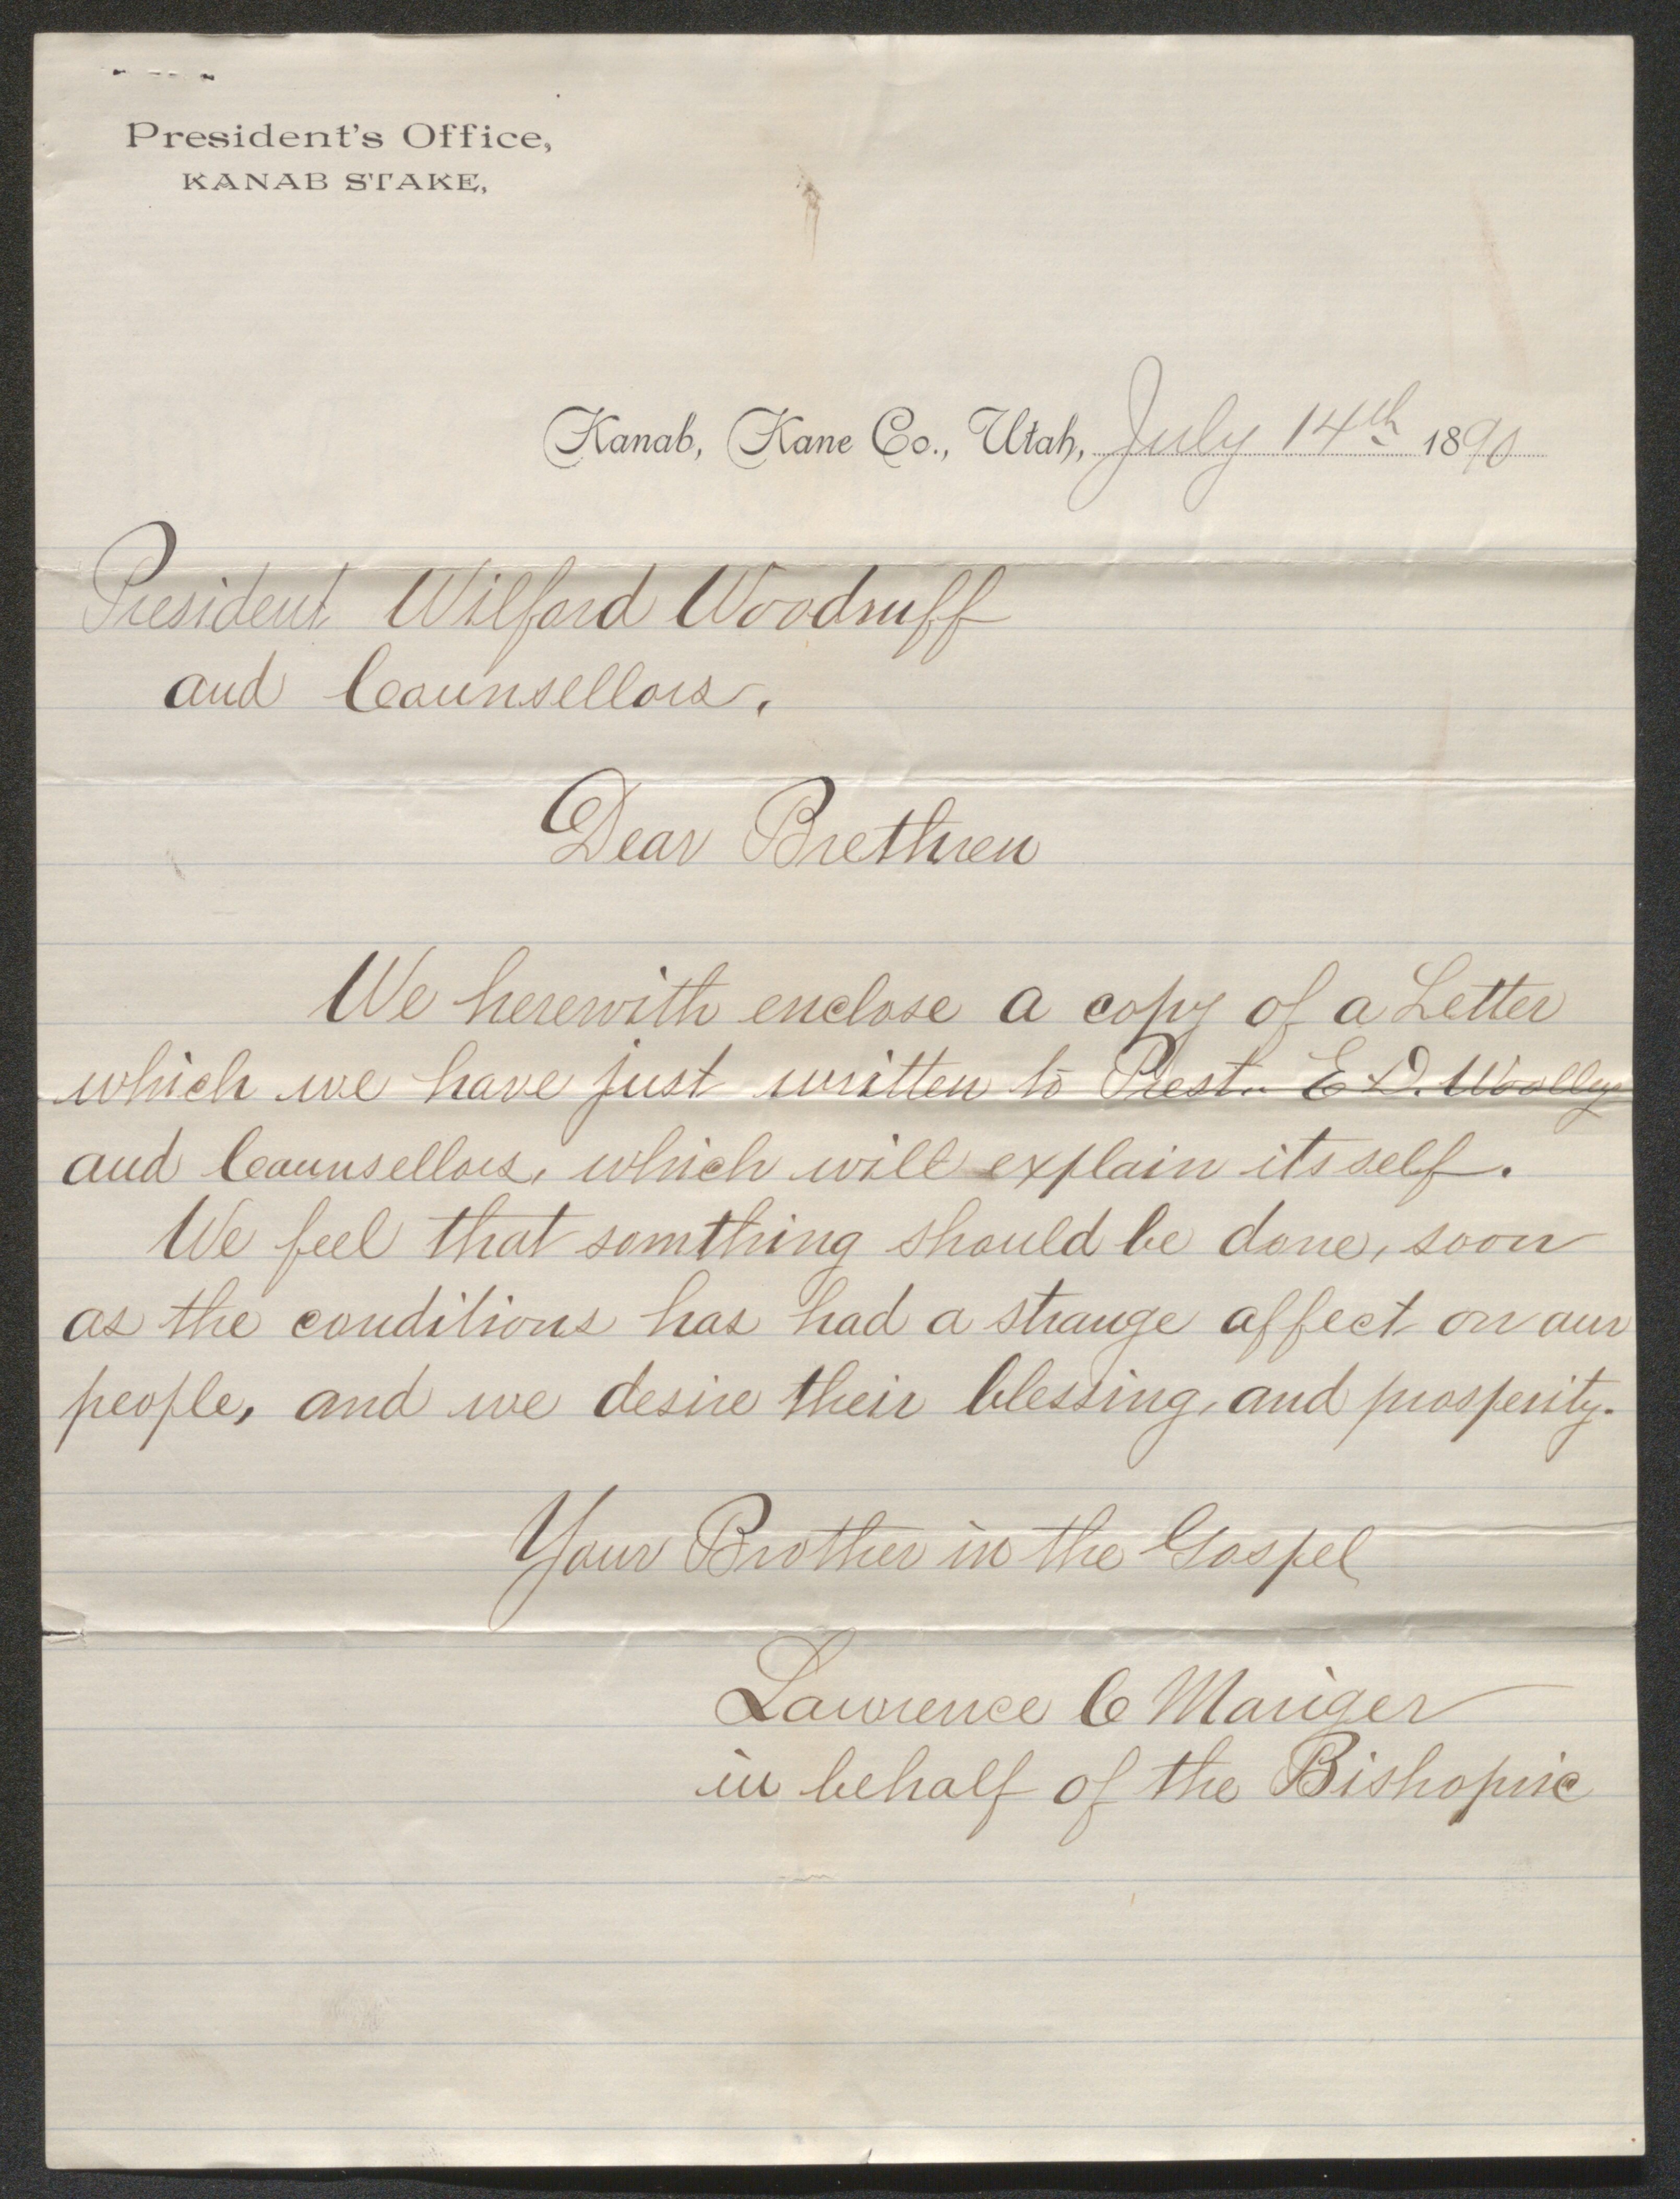 President's Office,
KANAB STAKE,
Kanab, Kane Co., Utah, July 14th 1890
President Wilford Woodruff
and Counsellors.
Dear Brethren
We herewith enclose a copy of a Letter
which we have just written to Prest. E D. Woolley
and Counsellors, which will explain itsself.
We feel that somthing should be done, soon
as the conditions has had a strange affect on our
people, and we desire their blessing, and prosperity.
Your Brother in the Gospel
Lawrence C Mariger
in behalf of the Bishopric